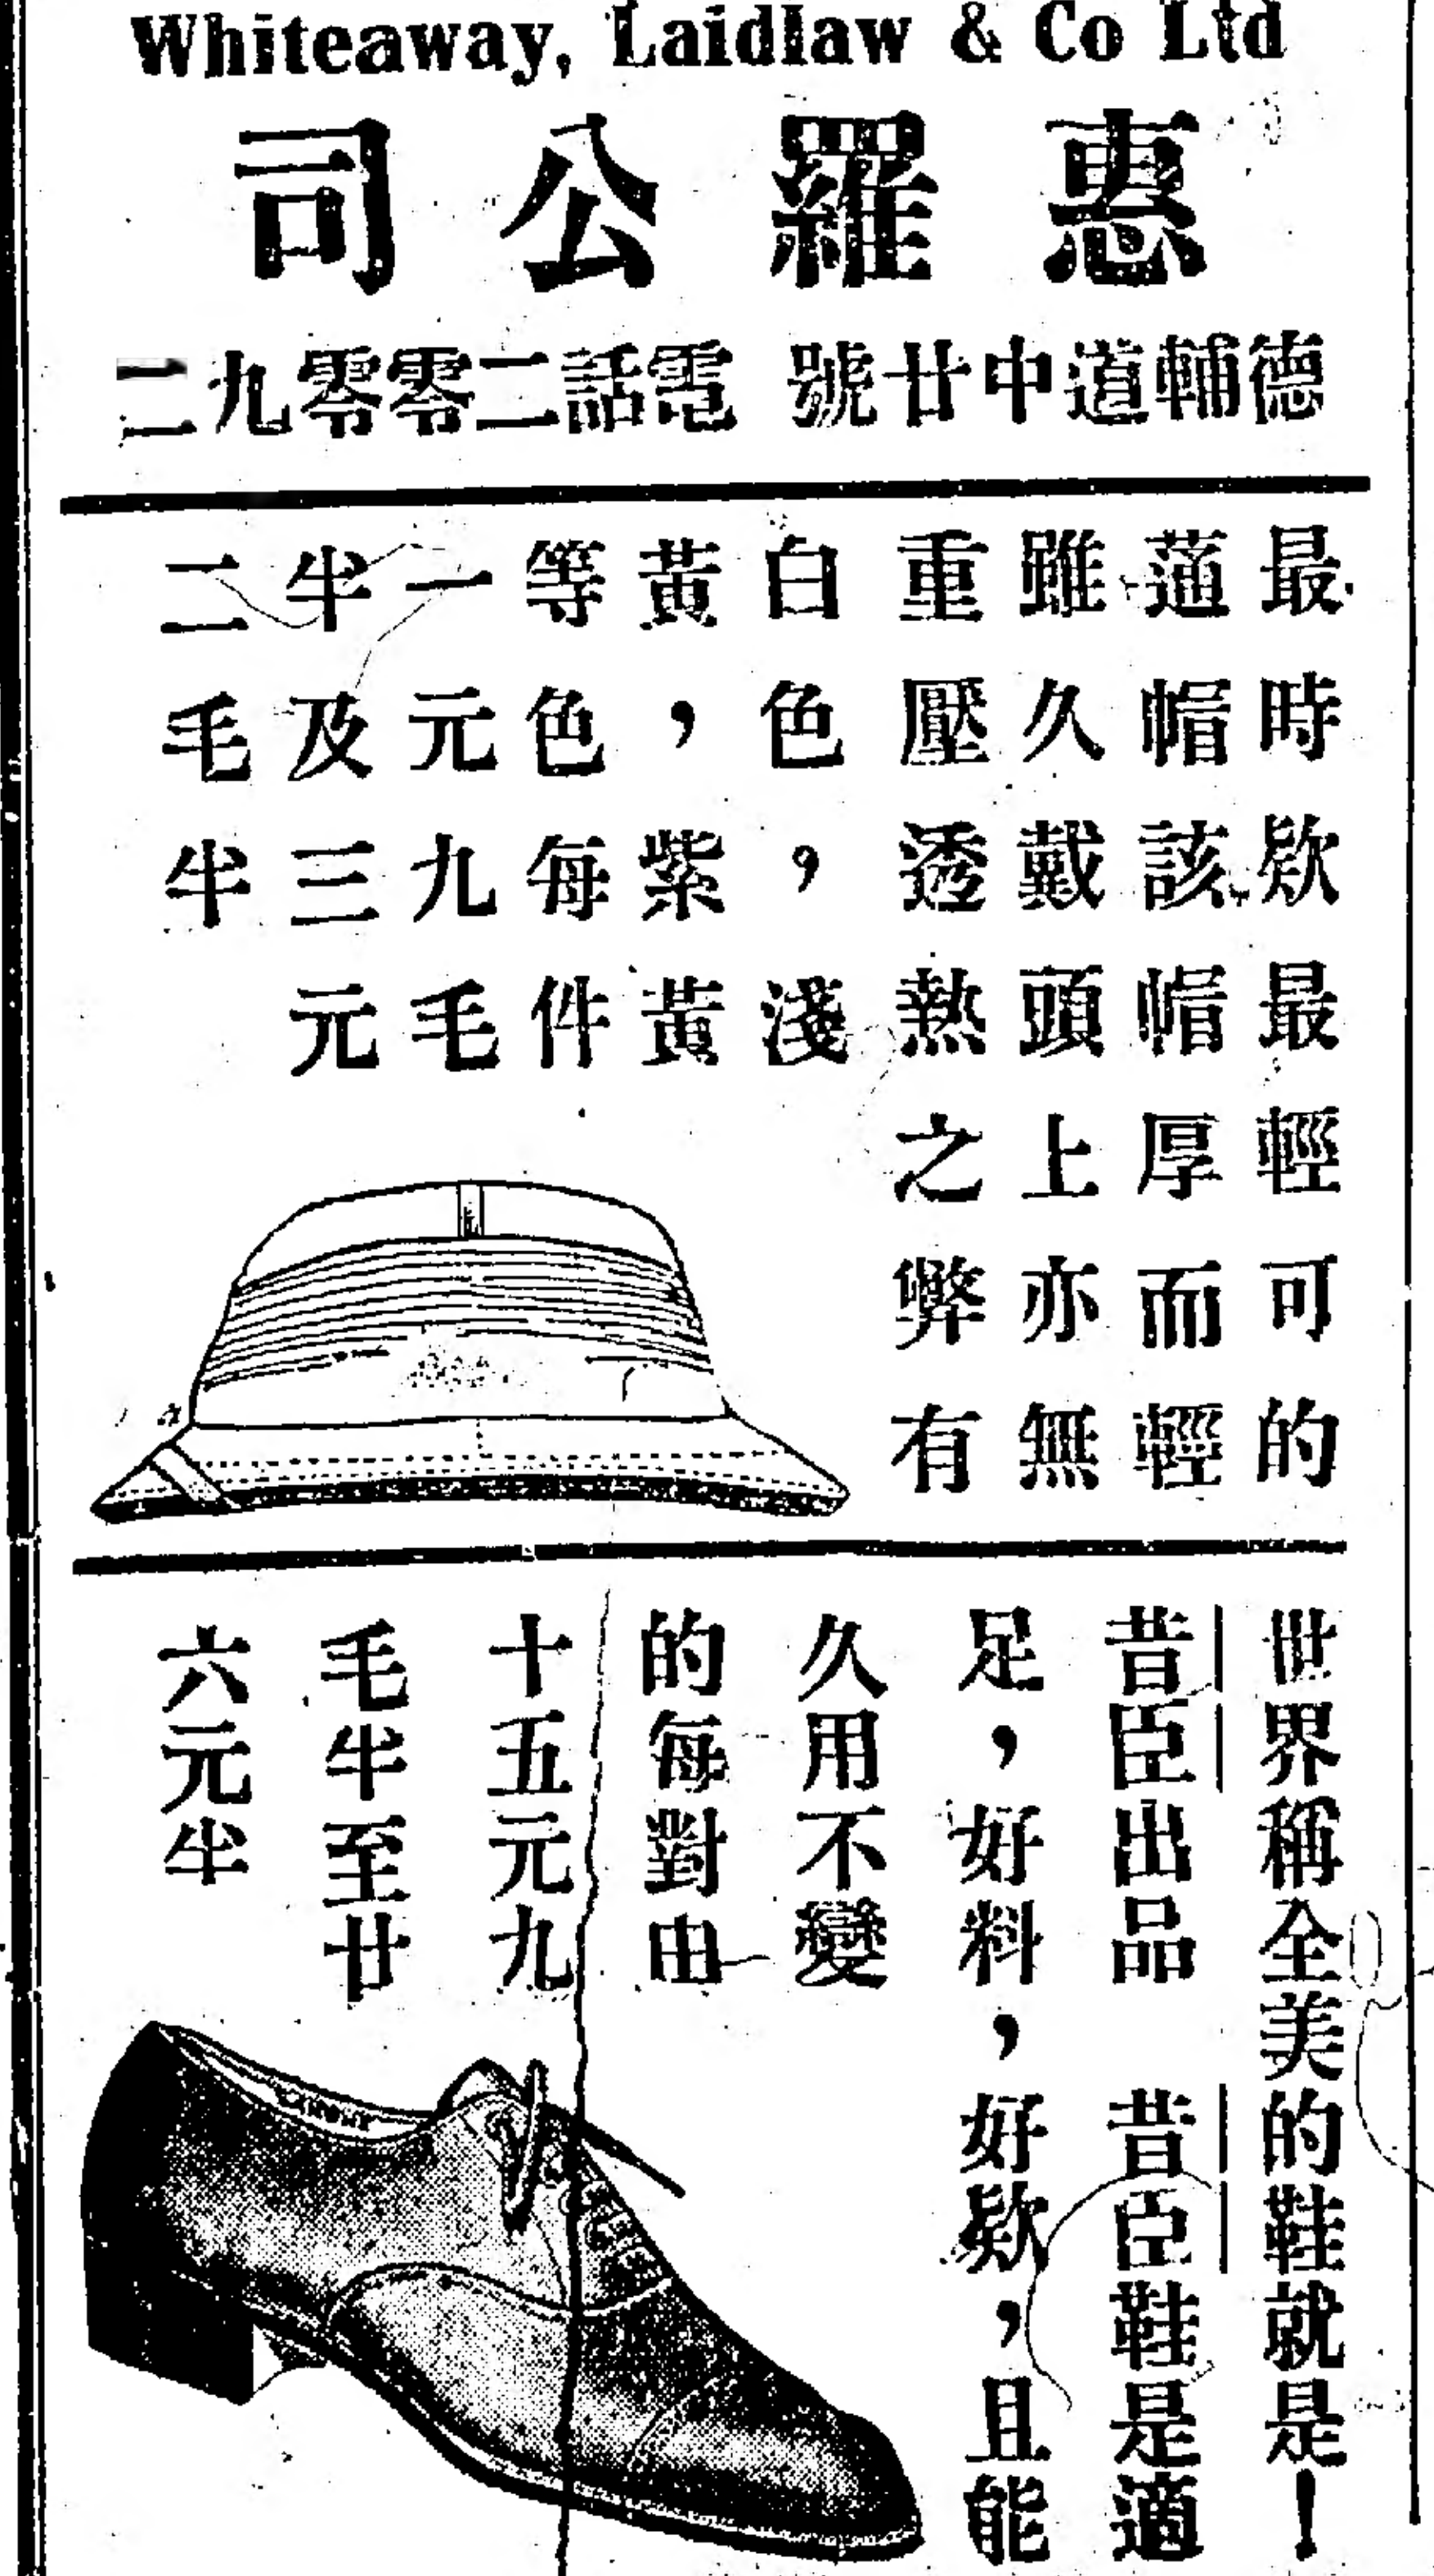 Whiteaway, Laidlaw & Co Ltd
惠羅公司
德輔道中廿號 電話二零零九二
最時欵最輕可的
薳帽該帽厚而輕
雖久戴頭上亦無
重壓透熱之弊有
白色，淺
黃，紫黃
等色每件
一元九毛
半及三元
二毛半
世界稱全美的鞋就是！
昔臣出品 昔臣鞋是適
足，好料，好欵，且能
久用不變
的每對由
十五元九
毛半至廿
六元半